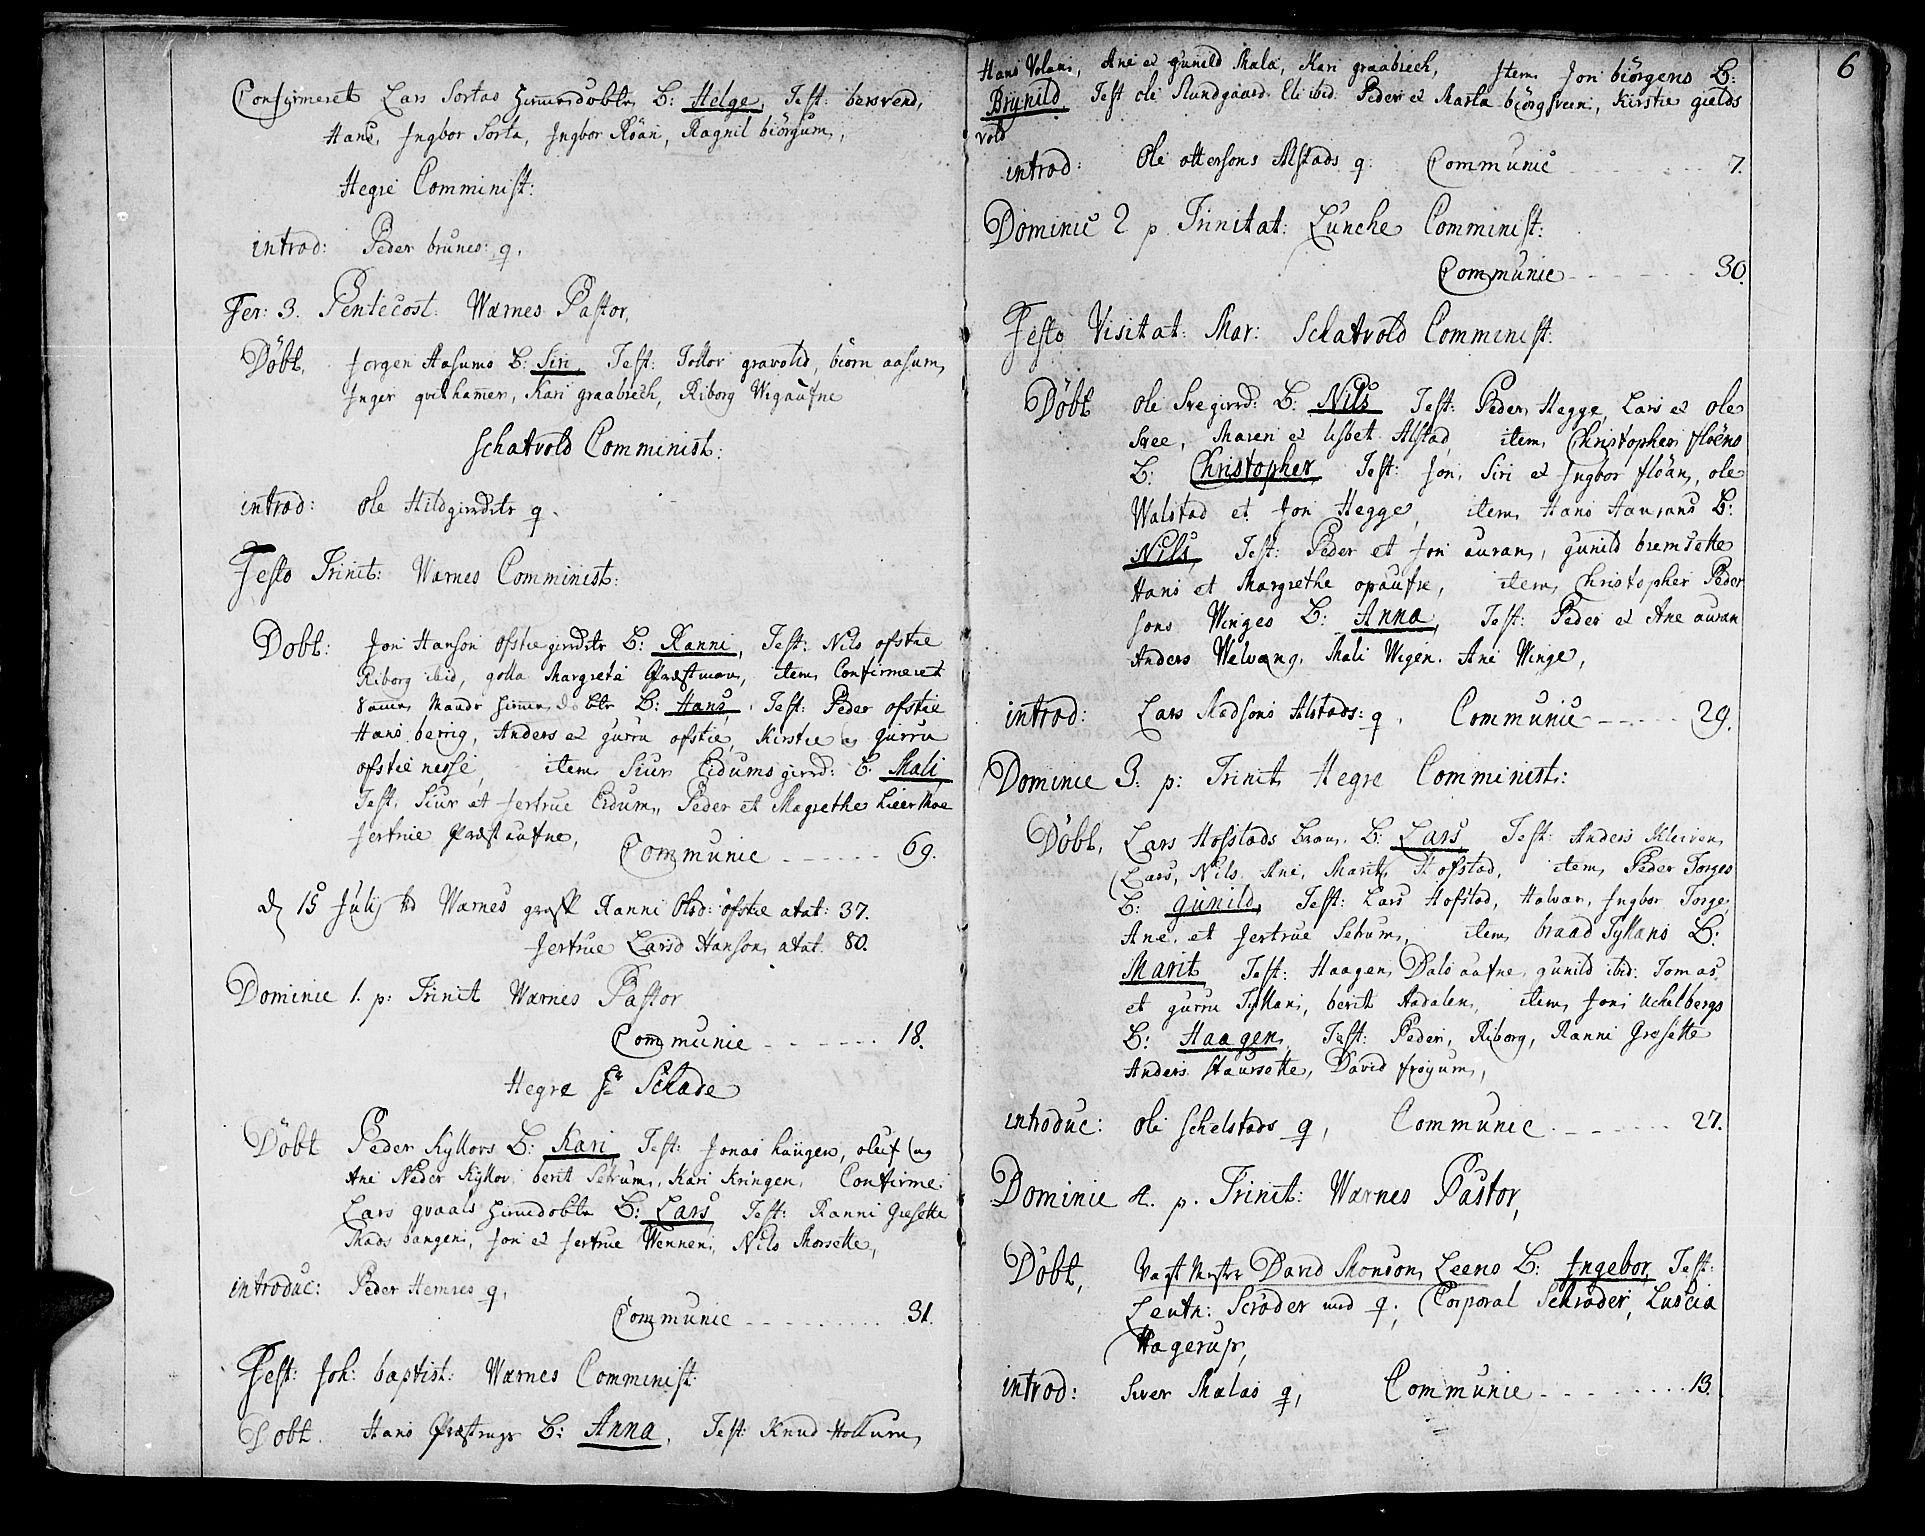 Confirmeret Lars Sortas hiemedøbte B: Helge, Test: bersvend,
Hans, Ingbor Sorta, Ingbor Röan, Ragnil biörgum,
Hegre Comminist:
introd: Peder brunes: q.
Fer: 3. Pentecost: Wærnes Pastor,
Döbt, Jorgen Aasums B: Siri, Test: Tollor gravolld, biörn aasum,
Inger qvithamer, Kari graabrech, Riborg Wigaufne
Schatvold Comminist:
introd: Ole Hildgirrdets q.
Festo Trinit: Wærnes Comminist:
Dobt: Jon Hanson ofstiegirrdets B: Ranni, Test: Nils ofstie
Riborg ibid, golla Margrete Præstmoen, item Confirmeret
B: Hans, Test: Peder ofstie
Hans berrig, Anders et gurru ofstie, Kirstie gurru
ofstie nesse, item Siur Eidums girrd: B. Mali,
Test. Siur et Jertrue Eidum, Peder et Magrethe Lieermoe
Jertrue Præstaufne, Communic - - - - - - 69.
d 15 Julij Wærnes Ranni Olsd: ofstie ætat: 37.
Jertrue Larsd Hanson, ætat. 80.
Dominic 1. p: Trinit Wærnes Pastor
Communic - - - - - - 18.
Hegre Hr Schade
Döbt Peder Kyllors B: Kari, Test: Jonas haugen, oluf
Ane Neder Kyllor, berit Setrum, Kari Kringen, Confirme:
Lars graals hiemdobte B: Lars, Test: Ranni Gresette
Mads bangen, Jon et Jertrue Wennen, Nils Morsette,
introduc: Peder Hemres q,
Communic - - - - - - - - - 31.
Fest: Joh: baptist: Wærnes Comminist.
Dobt. Hans B: Anna, Test: Knud Hollum,
6
Hans Volan, Ane et gunild Mala, Kari graabrech, Item Jon biörgens B:
Brynild, Test ole Slundgaard. Eli ibid. Peder et Marta biörgsvein, Kirstie gields
vold
introd: Ole ottersons Alstads q: Communic - - - - - - - 7.
Dominic 2 p Trinitat: Lunche Comminist:
Communic - - - - - - 30.
Festo Visitat: Mar: Schatvold Comminist:
Döbt Ole Svegirrd: B: Nils Test: Peder Hegge, Lars et ole
Svee, Maren et lisbet Alstad, item, Christopher flöens
B: Christopher, Test: Jon, Siri et Ingbor flöan, ole
Walstad et Jon Hegge, item, Hans Aurans B:
Nils, Test: Peder et Jon auran, gunild bremsette
Hans et Margrethe opaufne, item, Christopher Peder
sons Winges B: Anna, Test: Peder et Ane auran
Anders Welvang, Mali Wigen. Ane Winge,
introd: Lars Madsons Alstads: q. Communic - - - - - 29.
Dominic 3. p: Trinit, Hegre Comminist:
Döbt, Lars Hofstads B: Lars, Test: Anders Kleiven,
Lars, Nils. Ane, Marit, Hofstad, item, Peder Torges
B: gunild, Test: Lars Hofstad, Halvar, Ingbor Torge,
Ane, et Jertrue Setrum, item, braad Tyllans B:
Marit, Test: Haagen Dalsaufne, gunild ibid: Tomas
et gurru Tyllan, berit Aadalen, item, Jon uchelbergs
B: Haagen, Test: Peder, Riborg, Ranni Gresette
Anders Staursette, David frøyum,
introduc: ole Schelstads q, Communic - - - - - - 27.
Dominic 4. p. Trinit: Wærnes Pastor,
Döbt, Vagt Mester David Monson, Leens B: Ingebor, Test:
Leutn: Scröder med q:, Corporal Schröder, Luscia
Hagerup,
introd: Siver Mælas q, Communic - - - - - - - - - 13.